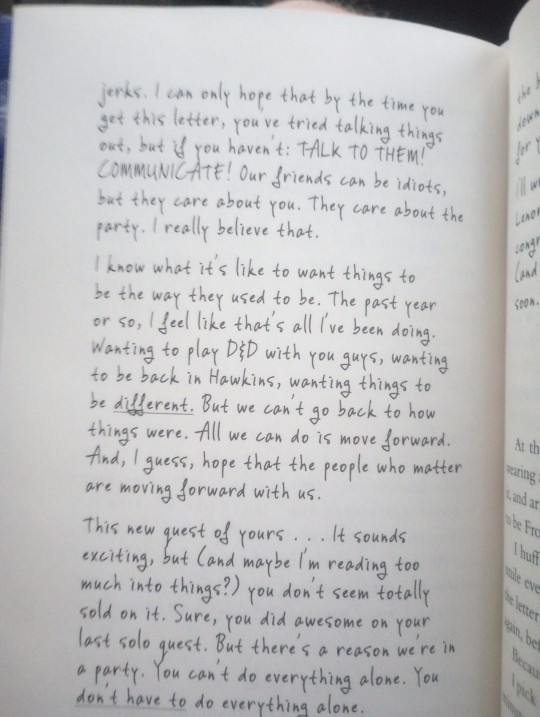 jerks. I can only hope that by the time you
get this letter, you've tried talking things
out, but if you haven't: TALK TO THEM!
COMMUNICATE! Our friends can be idiots,
but they care about you. They care about the
party. I really believe that.
I know what it's like to want things to
be the way they used to be. The past year
or so, I feel like that's all I've been doing.
Wanting to play D&D with you guys, wanting
to be back in Hawkins, wanting things to
be different. But we can't go back to how
things were. All we can do is move forward.
And, I guess, hope that the people who matter
are moving forward with us.
This new quest of yours . . . It sounds
exciting, but (and maybe I'm reading too
much into things?) you don't seem totally
sold on it. Sure, you did awesome on your
last solo quest. But there's a reason we're in
a party. You can't do everything alone. You
don't have to do everything alone.
the
down
for
I'll
Lenor
congr
(and
soon.
At th
wearing
and
to be Fro
I huff
smile eve
the letter
again, bef
Becau
I pick